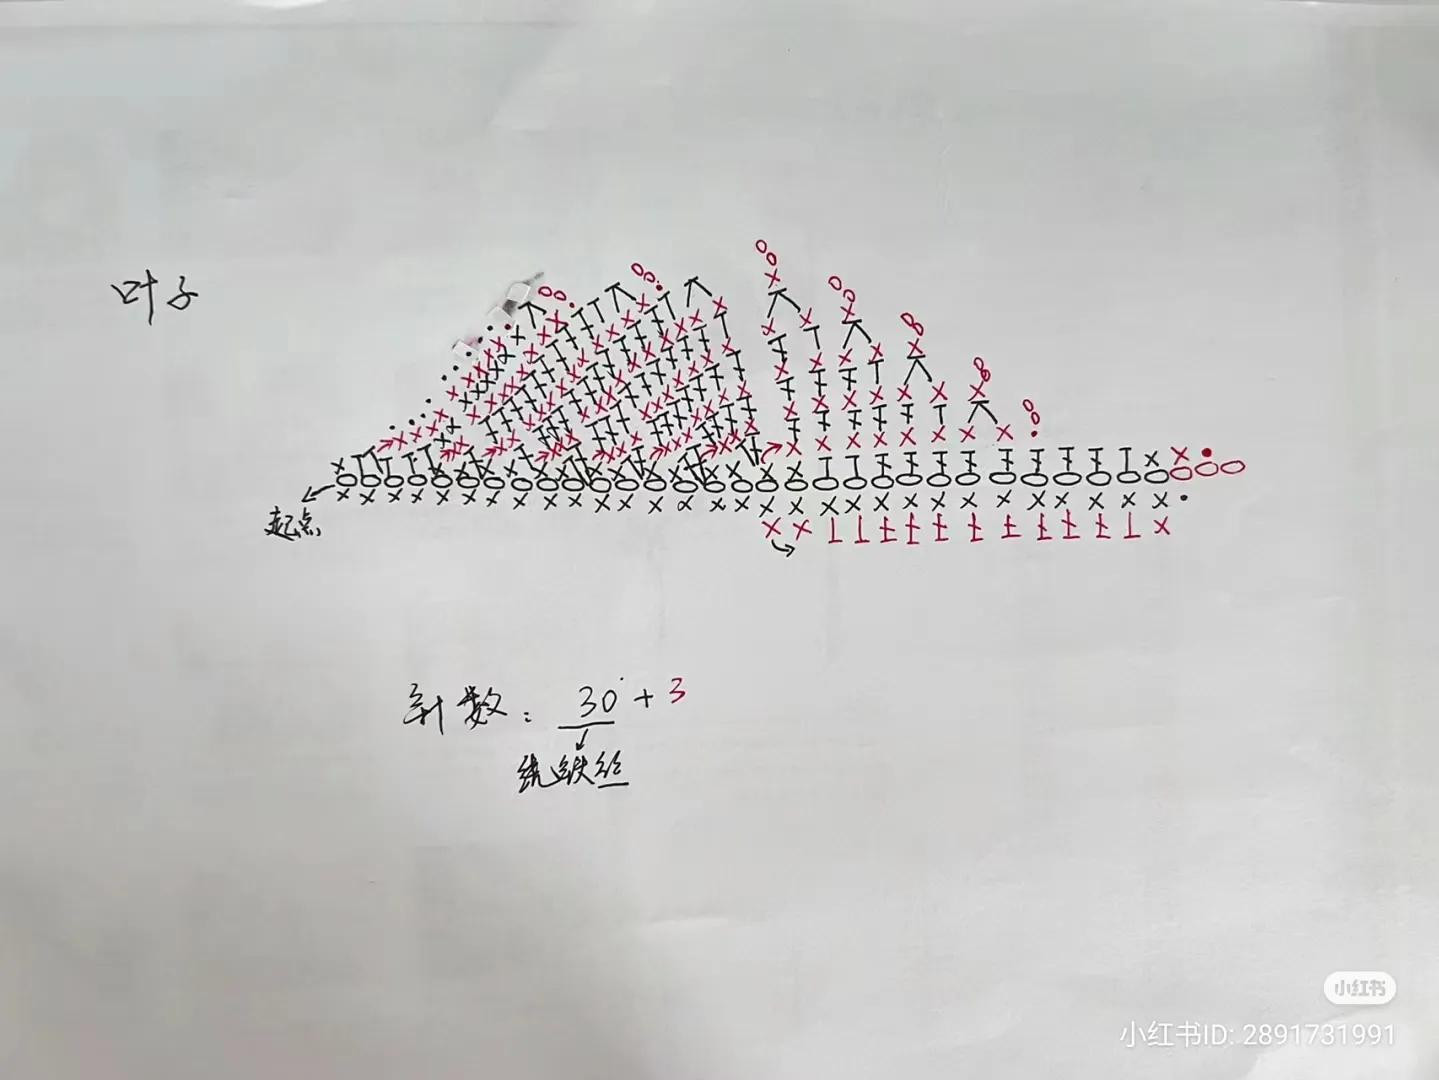 叶子
起点
针数：30+3
绕铁丝
小红书
小红书ID: 2891731991